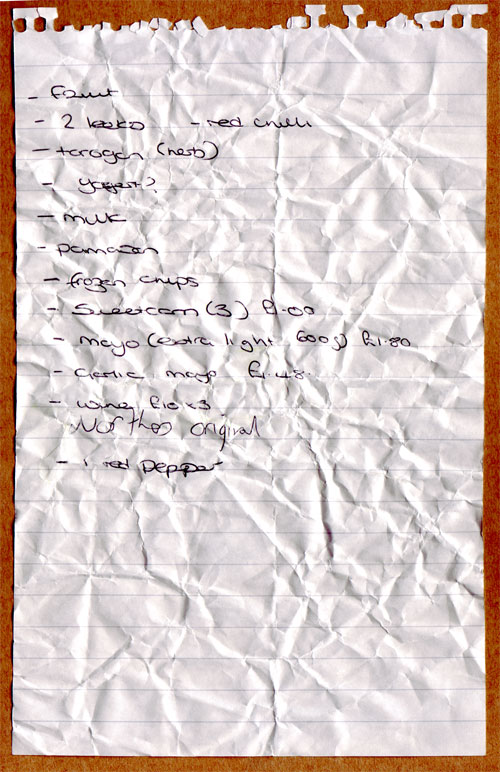 - Fruit
- 2 leeks - red chilli
- tarogen (herb)
- yogert?
- milk
- pamasan
- frozen chips
- Sweetcorn (3) £1.00
- mayo (extra light 600g) £1.80
- Garlic mayo £1.48
- wine £10 x 3
original
- 1 red pepper